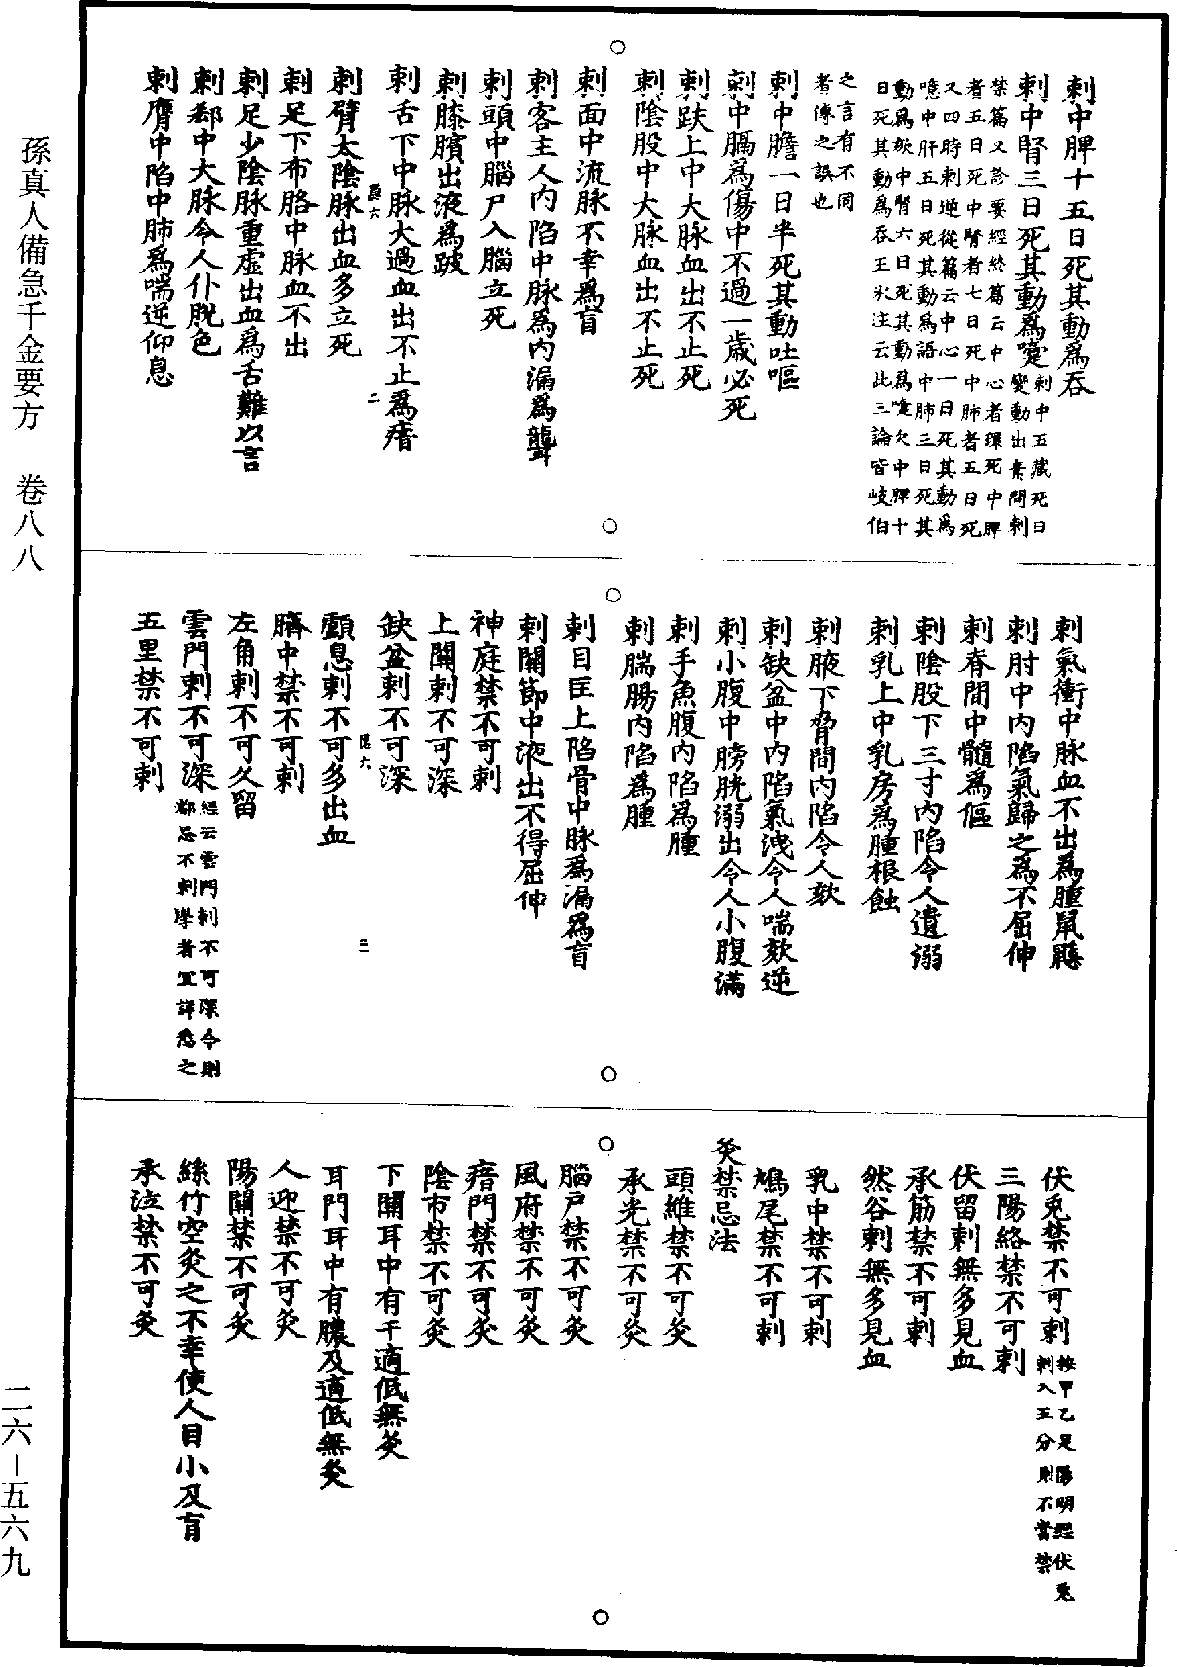 孫真人備急千金要方　卷八八
二六—五六九
刺中脾十五日死其動為吞
刺中腎三日死其動為嚏刺中五藏死日
變動出素問刺
禁篇又診要經終篇云中心者環死中脾
者五日死中腎者七日死中肺者五日死
又四時刺逆從篇云中心一日死其動為
噫中肝五日死其動為語中肺三日死其
動為欬中腎六日死其動為嚏欠中脾十
日死其動為吞王氷注云此三論皆岐伯
之言有不同
者傳之誤也
刺中膽一日半死其動吐嘔
刺中膈為傷中不過一歲必死
刺趺上中大脉血出不止死
刺陰股中大脉血出不止死
刺面中流脉不幸為盲
刺客主人内陷中脉為内漏為聾
刺頭中腦戸入腦立死
刺膝臏出液為跛
刺舌下中脉大過血出不止為瘖
刺臂太陰脉出血多立死
刺足下布胳中脉血不出
刺足少陰脉重虛出血為舌難以言
刺郄中大脉令人仆脱色
刺膺中陷中肺為喘逆仰息
刺氣衝中脉血不出為腫鼠鼷
刺肘中内陷氣歸之為不屈伸
刺脊間中髓為傴
刺陰股下三寸内陷令人遺溺
刺乳上中乳房為腫根蝕
刺腋下脅間内陷令人欬
刺缺盆中内陷氣洩令人喘欬逆
刺小腹中膀胱溺出令人小腹滿
刺手魚腹内陷為腫
刺腨腸内陷為腫
刺目匡上陷骨中脉為漏為盲
刺關節中液出不得屈伸
神庭禁不可刺
上關刺不可深
缺盆刺不可深
顱息刺不可多出血
臍中禁不可刺
左角刺不可久留
雲門刺不可深經云雲門刺不可深今則
都忌不刺學者宜詳悉之
五里禁不可刺
伏兎禁不可刺按甲乙足陽明經伏兎
刺入五分則不當禁
三陽絡禁不可刺
伏留刺無多見血
承筋禁不可刺
然谷刺無多見血
乳中禁不可刺
鳩尾禁不可刺
灸禁忌法
頭維禁不可灸
承光禁不可灸
腦戸禁不可灸
風府禁不可灸
瘖門禁不可灸
陰市禁不可灸
下關耳中有干適低無灸
耳門耳中有膿及適低無灸
人迎禁不可灸
陽關禁不可灸
絲竹空灸之不幸使人目小及盲
承泣禁不可灸